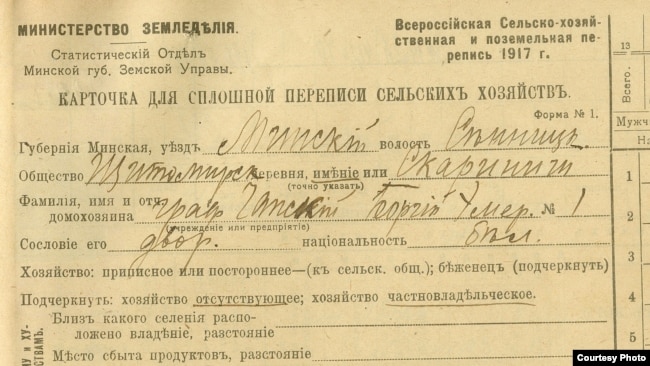 МИНИСТЕРСТВО ЗЕМЛЕДѢЛІЯ.
Статистическій Отдѣлъ
Минской губ. Земской Управы.
Всероссійская Сельско-хозяй-
ственная и поземельная пе-
репись 1917 г.
КАРТОЧКА ДЛЯ СПЛОШНОЙ ПЕРЕПИСИ СЕЛЬСКИХЪ ХОЗЯЙСТВЪ.
Форма № 1.
Губернія Минская, уѣздъ Минскій волость Сѣницк.
Общество Щитомирск деревня, имѣніе или Скариничи
(точно указать)
Фамилія, имя и отч.
домохозяина графъ Чапскій Георгій № 1
(учрежденіе или предпріятіе)
Сословіе его двор. національность бѣл.
Хозяйство: приписное или постороннее—(къ сельск. общ.); бѣженецъ (подчеркнуть)
Подчеркнуть: хозяйство отсутствующее; хозяйство частновладѣльческое.
Близъ какого селенія распо-
ложено владѣніе, разстояніе
Мѣсто сбыта продуктовъ, разстояніе
13
Всего.
Мужч
На
1
2
3
4
5
Courtesy Photo